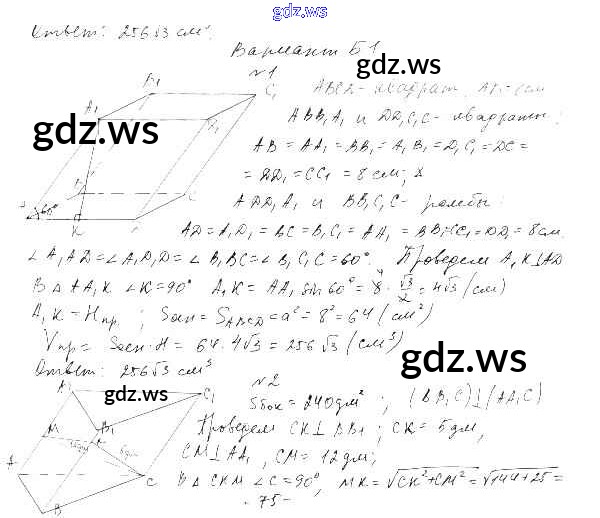 gdz.ws
Ответ: 256√3 см³
Вариант Б1
gdz.ws
№1
ABCD - квадрат,
ABB₁A₁ и DD₁C₁C - квадраты:
gdz.ws
AB = AA₁ = BB₁ = A₁B₁ = D₁C₁ = DC =
= DD₁ = CC₁ = 8 см;
ADD₁A₁ и BB₁C₁C - ромбы:
AD = A₁D₁ = BC = B₁C₁ = AA₁ = BB₁ = CC₁ = DD₁ = 8 см.
∠A₁AD = ∠A₁D₁D = ∠B₁BC = ∠B₁C₁C = 60°. Проведем A₁K⊥AD
В △AA₁K ∠K = 90° A₁K = AA₁ sin 60° = 8 · √3/2 = 4√3 (см)
A₁K = Hпр. ; Sосн = S_ABCD = a² = 8² = 64 (см²)
Vпр = Sосн·H = 64 · 4√3 = 256√3 (см³)
Ответ: 256√3 см³
gdz.ws
gdz.ws
№2
Sбок = 240 дм² ; (BB₁C)⊥(AA₁C)
Проведем CK⊥BB₁ ; CK = 5 дм,
CM⊥AA₁, CM = 12 дм;
В △CKM ∠C = 90°, MK = √CK²+CM² = √144+25 =
- 75 -